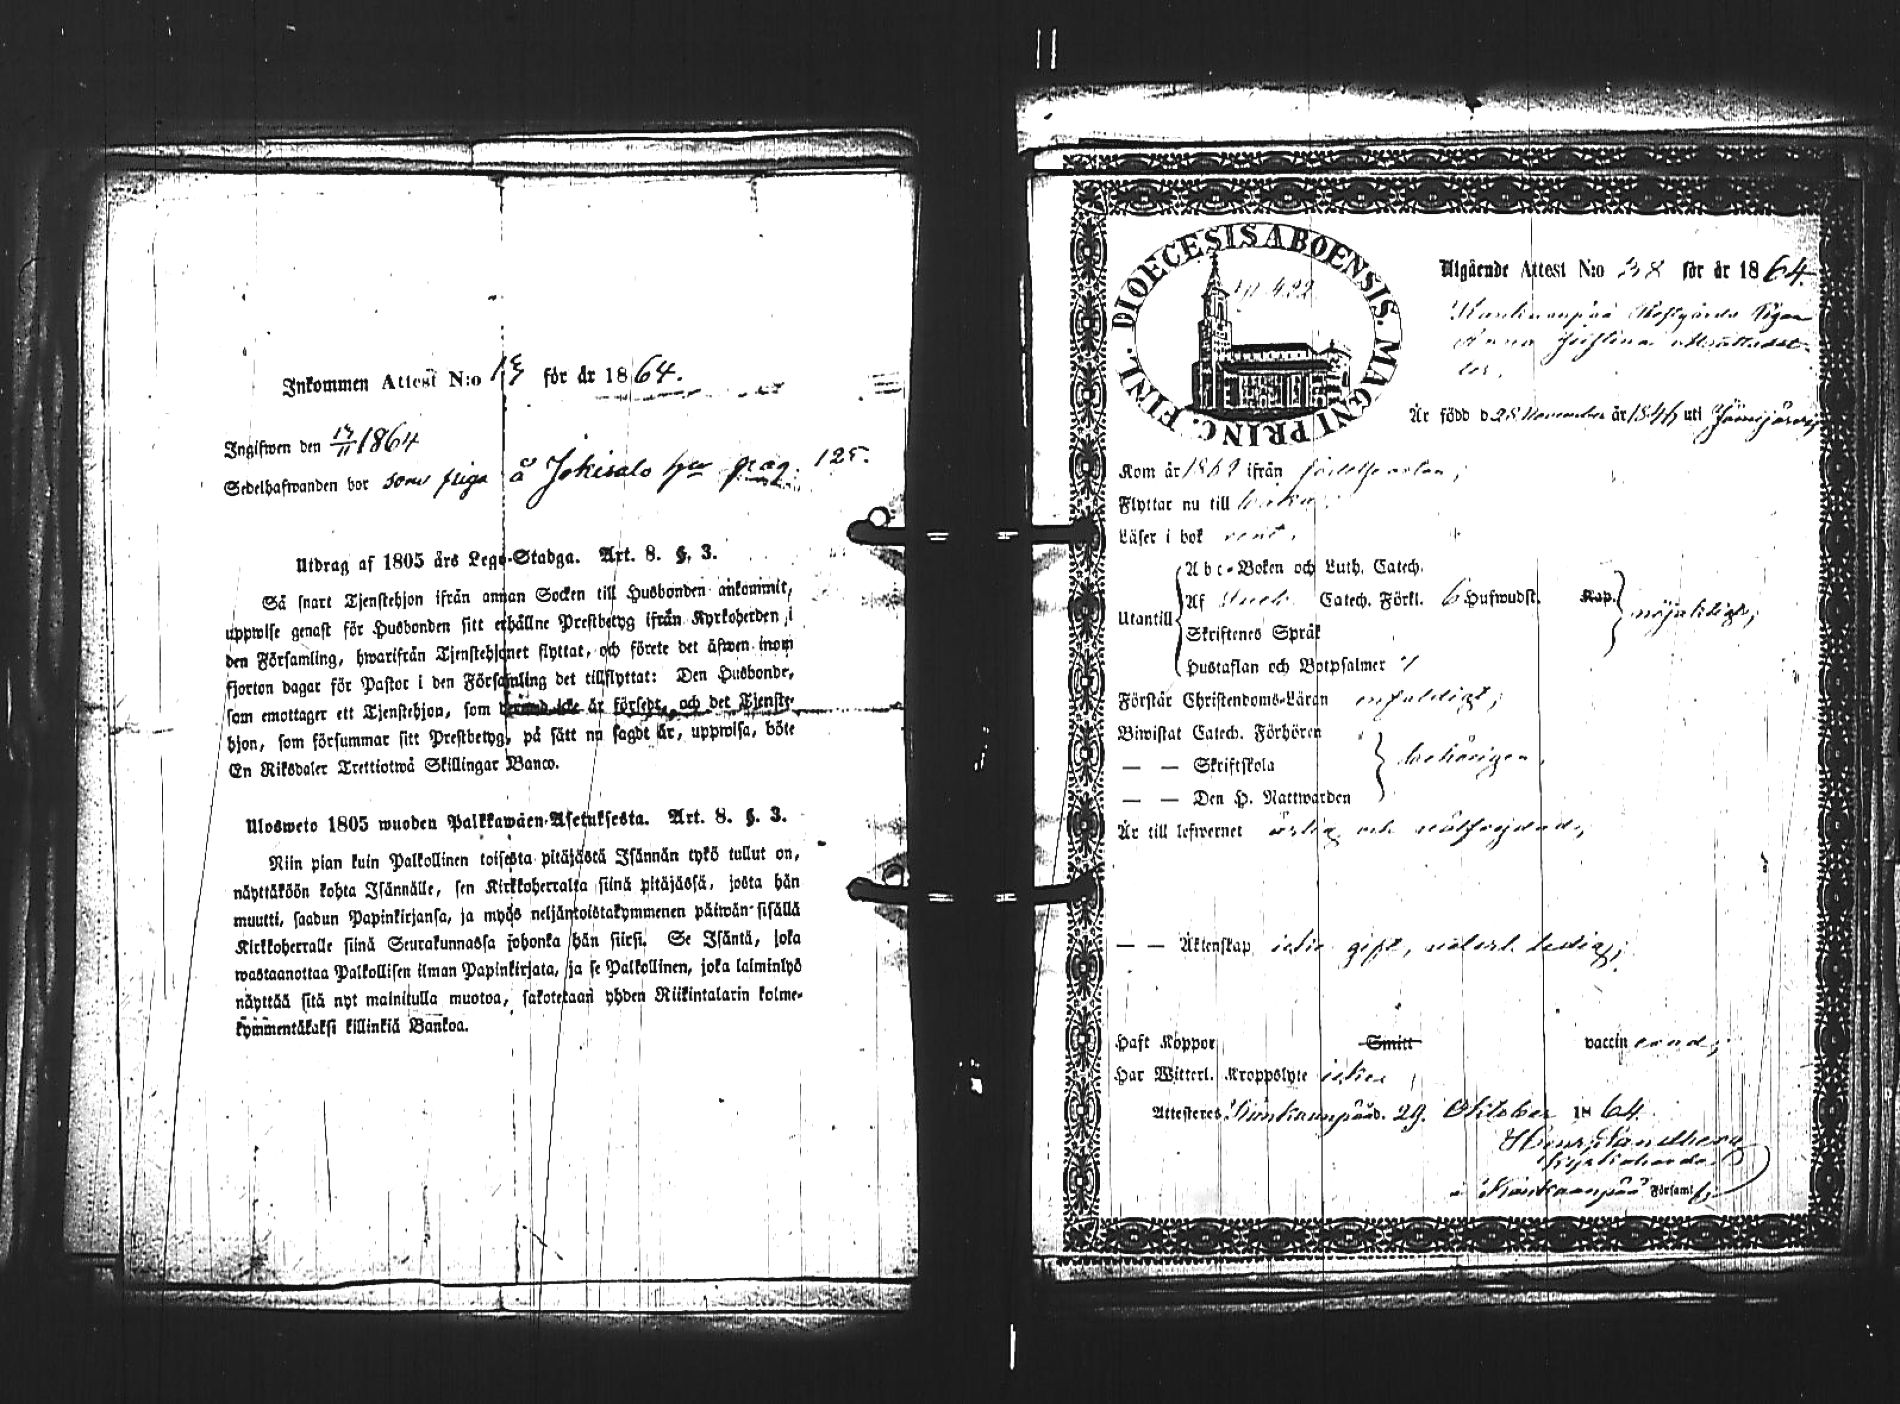 Inkommen Attest N:o 13 för år 1864.
Ingifwen den 13/11 1864
Sedelhafwanden bor som piga å Jokisalo hem pag. 125.
Utdrag af 1805 års Lego-Stadga. Art. 8. §. 3.
Så snart Tjenstehjon ifrån annan Socken till Husbonden ankommit,
uppwise genast för Husbonden sitt erhållne Prestbetyg ifrån Kyrkoherden i
den Församling, hwarifrån Tjenstehjonet flyttat, och förete det äfwen inom
fjorton dagar för Pastor i den Församling det tillflyttat: Den Husbonde,
som emottager ett Tjenstehjon, som dermed icke är försedt, och det Tjenste-
hjon, som försummar sitt Prestbetyg, på sätt nu sagdt är, uppwisa, böte
En Riksdaler Trettiotwå Skillingar Banco.
Ulosweto 1805 wuoden Palkkawäen-Asetuksesta. Art. 8. §. 3.
Niin pian kuin Palkollinen toisesta pitäjästä Isännän tykö tullut on,
näyttäköön kohta Isännälle, sen Kirkkoherralta siinä pitäjässä, josta hän
muutti, saadun Papinkirjansa, ja myös neljäntoistakymmenen päiwän sisällä
Kirkkoherralle siinä Seurakunnassa johonka hän siirsi. Se Isäntä, joka
wastaanottaa Palkollisen ilman Papinkirjata, ja se Palkollinen, joka laiminlyö
näyttää sitä nyt mainitulla muotoa, sakotetaan yhden Riikintalarin kolme-
kymmentäkaksi killinkiä Bankoa.
DIOECESIS ABOENSIS. MAGNI PRINC. FINL.
422
Utgående Attest N:o 38 för år 1864.
Kankaanpää Pigan
Anna Justina Mattsdot-
ter.
Är född d 28 November år 1844 uti Jämijärvi
Kom år 1862 ifrån födelseorten;
Flyttar nu till
Läser i bok rent,
Utantill
Abc-Boken och Luth. Catech.
Af Catech. Förkl. 6 Hufwudst. Kap.
Skriftenes Språk
Hustaflan och Botpsalmer
nöjaktigt;
Förstår Christendoms-Läran enfaldigt;
Biwistat Catech. Förhören
— — Skriftskola
— — Den H. Nattwarden
behörigen,
Är till lefwernet ärlig och wälfrejdad,
— — Äktenskap icke gift, ledig;
Haft Koppor Smitt vaccinerad;
Har Witterl. Kroppslyte icke
Attesteras Kankaanpää d. 29 Oktober 1864
Henr. Sandberg
Kyrkoherde
i Kankaanpää Församl.